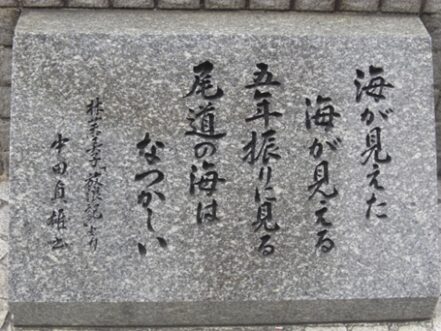 海が見えた
海が見える
五年振りに見る
尾道の海は
なつかしい
林芙美子「放浪記」より
中田貞雄書